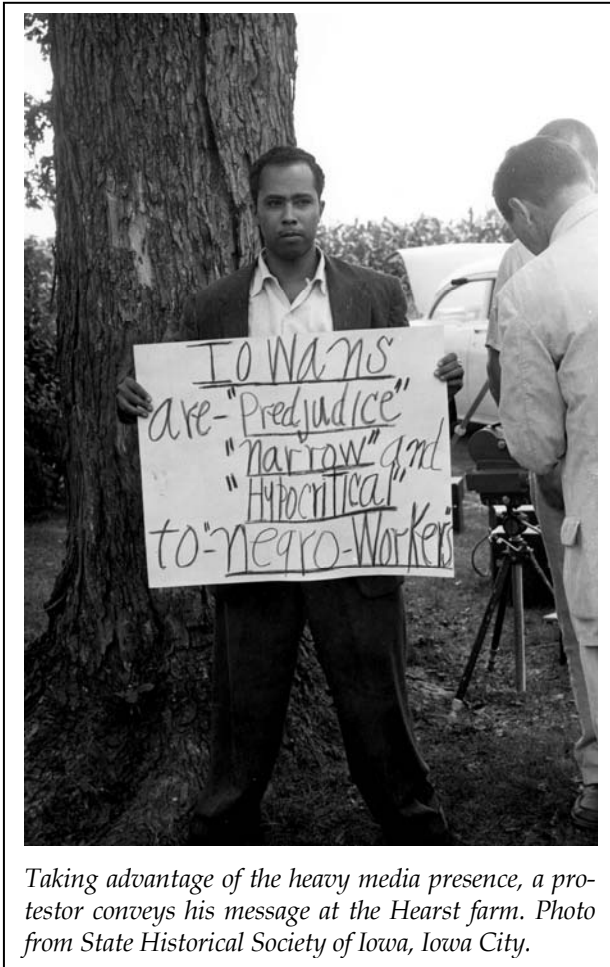 IOWANS
are-"Predjudice"
"narrow" and
"Hypocritical"
to-"negro-Workers"
Taking advantage of the heavy media presence, a pro-
testor conveys his message at the Hearst farm. Photo
from State Historical Society of Iowa, Iowa City.